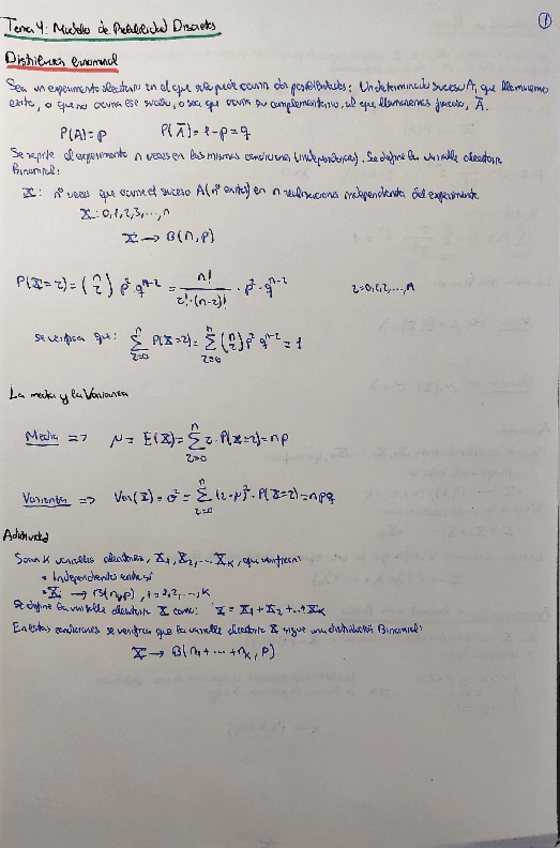 1
Tema 4: Modelos de Probabilidad Discretos
Distribución binomial
Sea un experimento aleatorio en el que solo puede ocurrir dos posibilidades: Un determinado suceso A, que llamaremos
éxito, o que no ocurra ese suceso, o sea que ocurra su complementario, al que llamaremos fracaso, Ā.
P(A)=p P(Ā)=1-p=q
Se repite el experimento n veces en las mismas condiciones (independientes). Se define la variable aleatoria
Binomial:
X: nº veces que ocurre el suceso A (nº éxitos) en n realizaciones independientes del experimento
X: 0,1,2,3,...,n
X → B(n,p)
P(X=r) = (n r) p^r q^n-r = n! / r!·(n-r)! · p^r · q^n-r r=0,1,2,...,n
se verifica que: Σ r=0 n P(X=r) = Σ r=0 n (n r) p^r q^n-r = 1
La media y la Varianza
Media => μ = E(X) = Σ r=0 n r·P(X=r) = np
Varianza => Var(X) = σ² = Σ r=0 n (r-μ)²·P(X=r) = npq
Aditividad
Sean K variables aleatorias, X1, X2, ... XK, que verifican:
• Independientes entre sí
• Xi → B(ni,p), i=1,2,...,K
Se define la variable aleatoria X como: X = X1 + X2 + ... + XK
En estas condiciones se verifica que la variable aleatoria X sigue una distribución Binomial:
X → B(n1 + ... + nK, p)